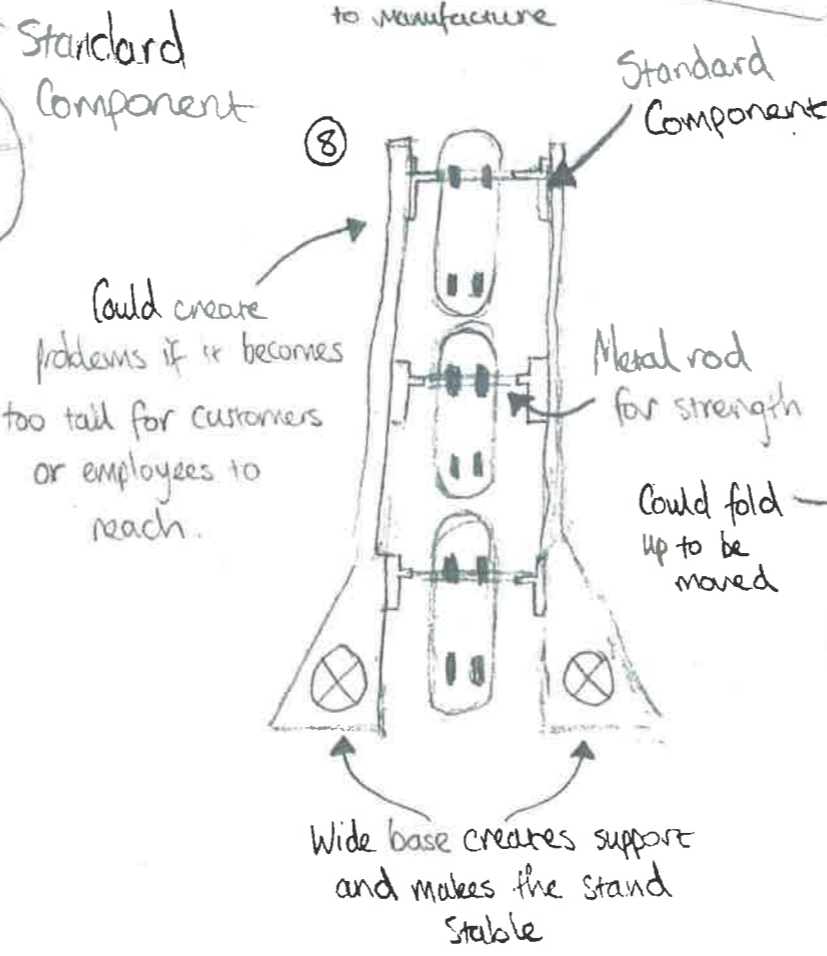 to Manufacture
Standard
Component
Standard
Component
8
Could create
problems if it becomes
too tall for customers
or employees to
reach.
Metal rod
for strength
Could fold
up to be
moved
Wide base creates support
and makes the stand
Stable